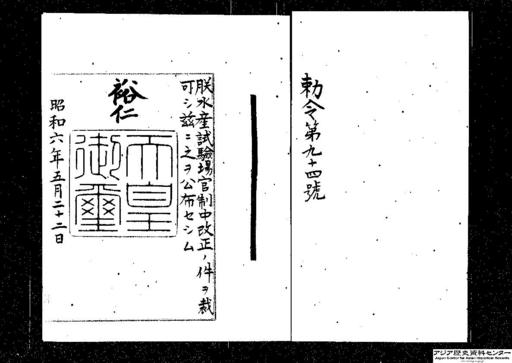 勅令第九十四號
朕水産試驗場官制中改正ノ件ヲ裁
可シ茲ニ之ヲ公布セシム
裕仁
天皇
御璽
昭和六年五月二十二日
アジア歴史資料センター
Japan Center for Asian Historical Records